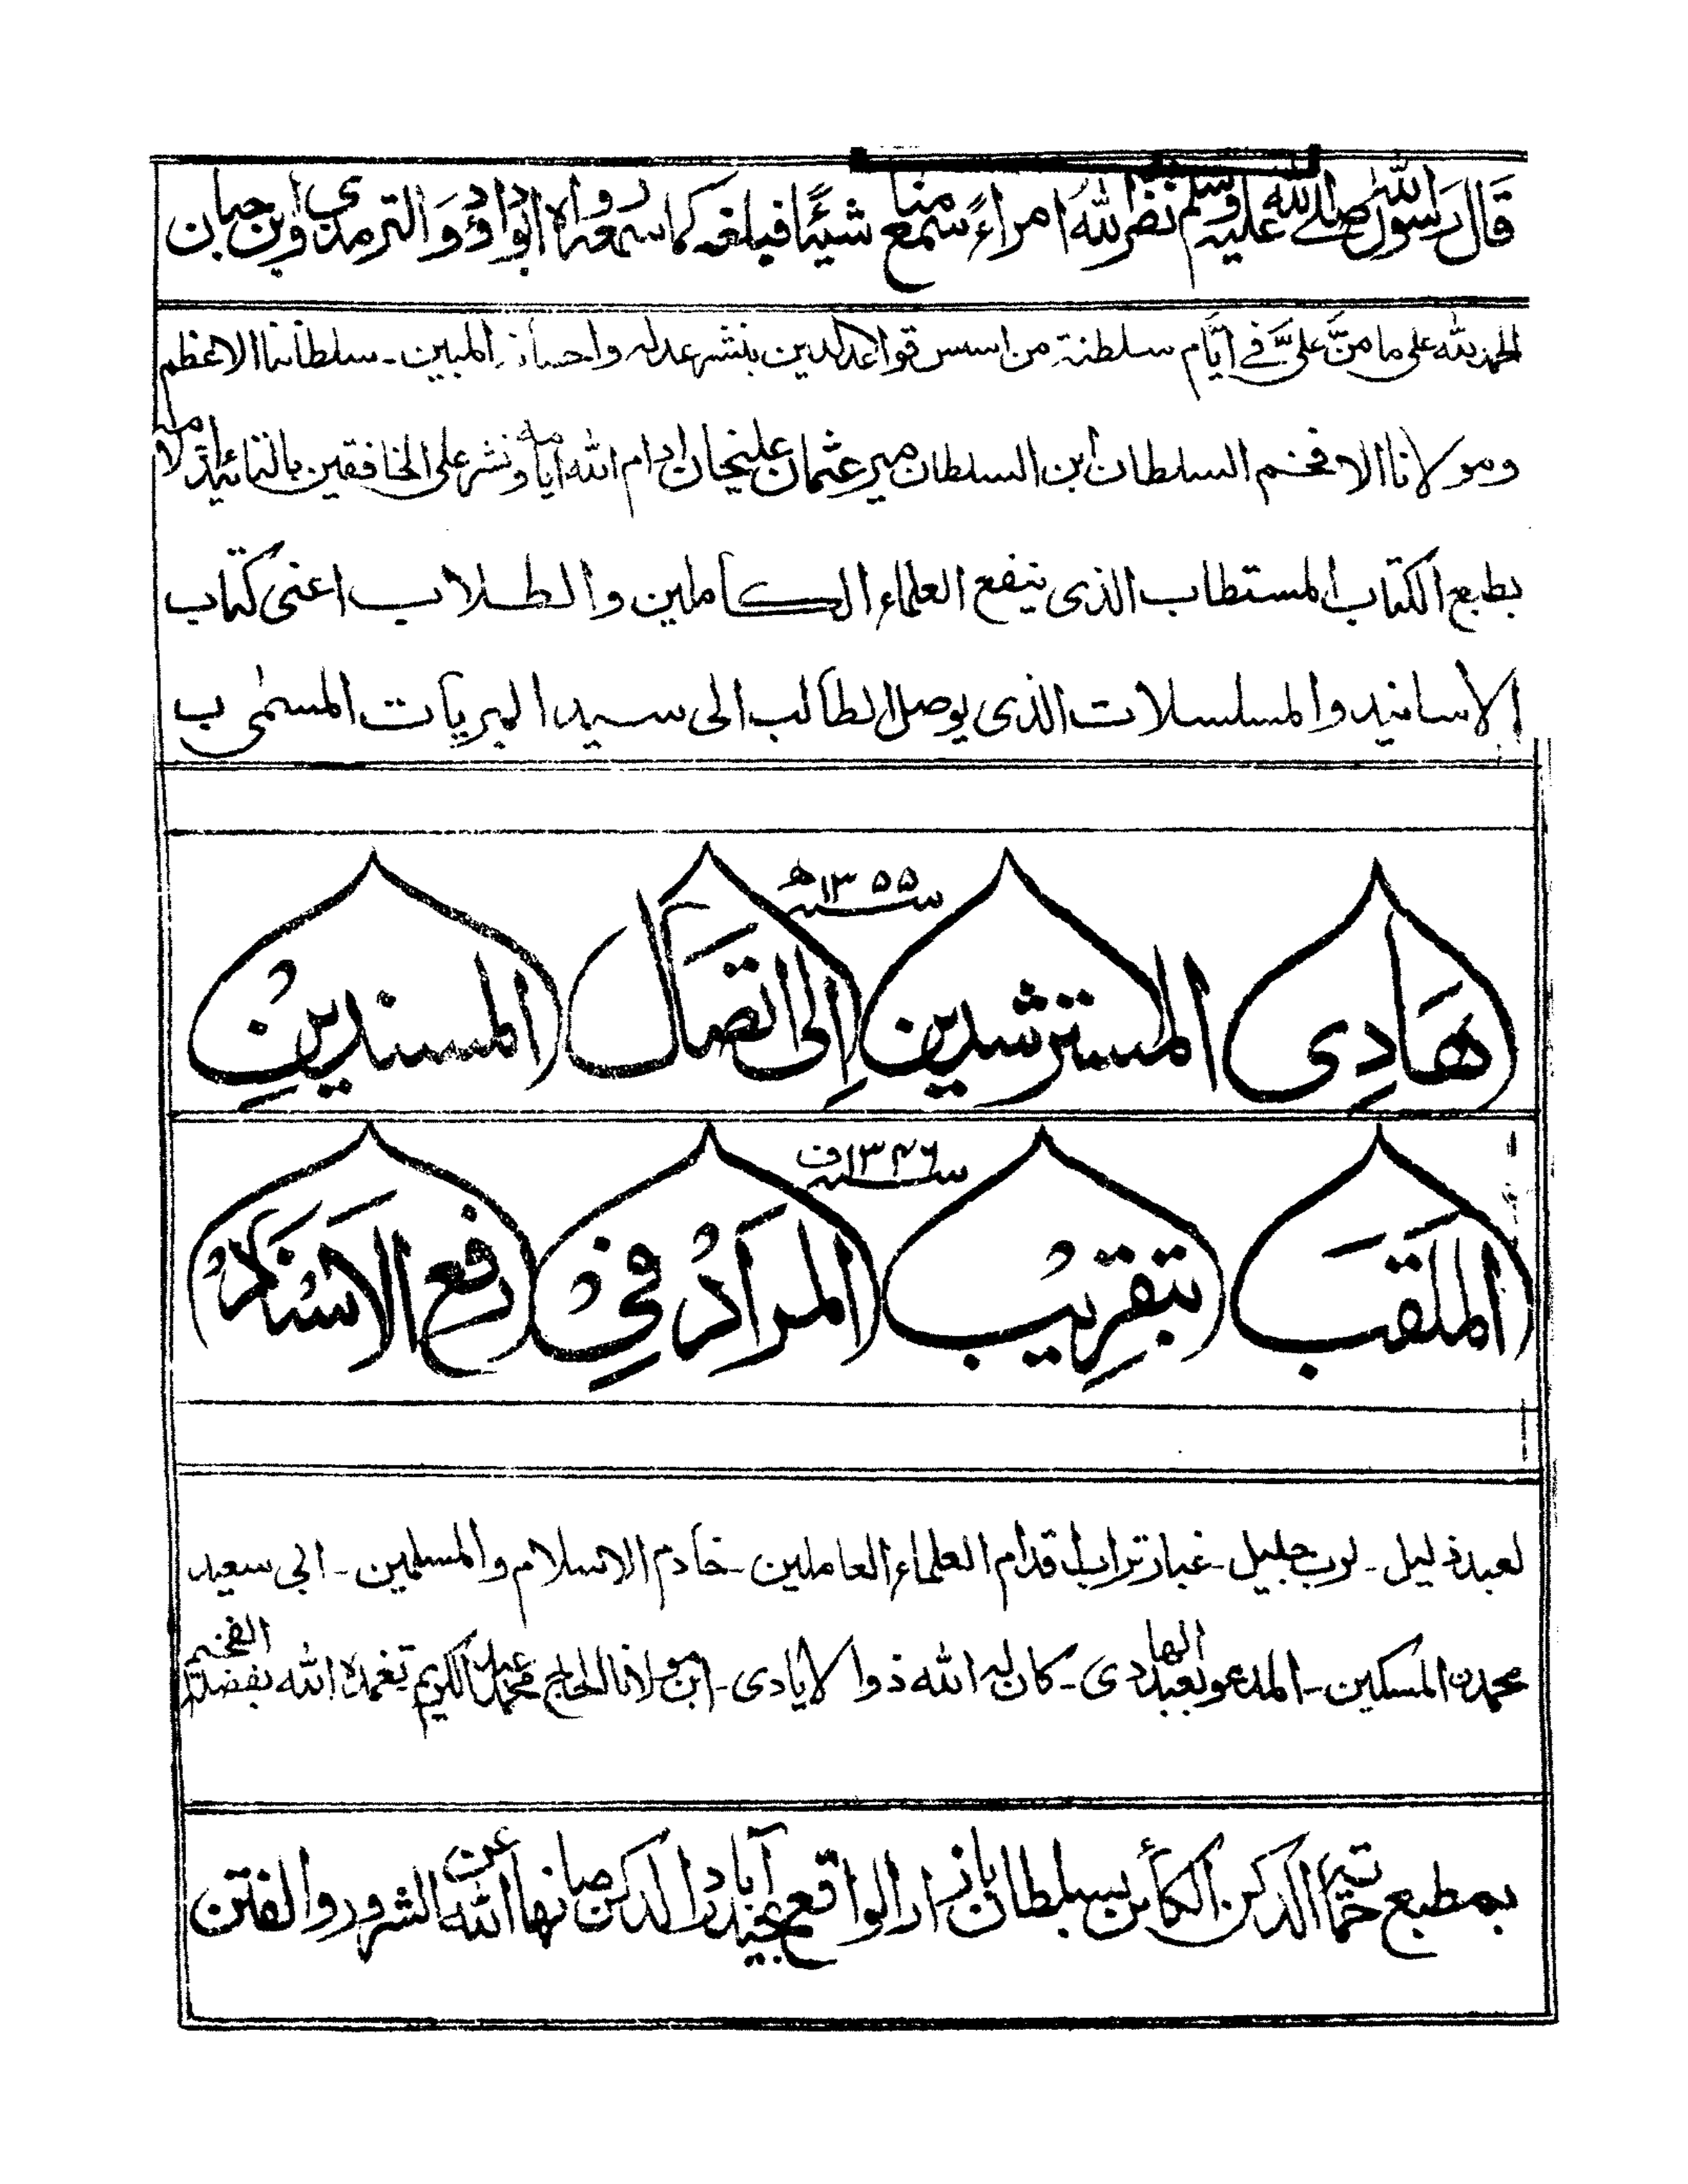 قَالَ رَسولُ اللهِ صلى الله عليه وسلم نضر اللهُ امراءً سمع منا شيئًا فبلغه كما سمعه رواه ابو داؤد وَالترمذى وابن حبان
الحمد لله على ما منَّ علىَّ فى ايَّام سلطنة من اسس قواعد الدين بنشر عدله واحسانه المبين - سلطاننا الاعظم
ومولانا الافخم السلطان ابن السلطان مير عثمان عليخان ادام الله ايامه ونشر على الخافقين بالتائيد
بطبع الكتاب المستطاب الذى ينفع العلماء الكاملين والطلاب اعنى كتاب
الاسانيد والمسلسلات الذى يوصل الطالب الى سيد البريات المسمى ب
سنه ١٣٥٥ھ
هَادِى المسترشدين إِلى اتصَال المسندينِ
سنه ١٣٤٦ف
الملَقبَ بتقرِيبْ المرَادْ فِيْ رفع الاسْنَادْ
لعبد ذليل - لرب جليل - غبار تراب اقدام العلماء العاملين - خادم الاسلام والمسلمين - ابى سعيد
محمدن المسكين - المدعو بعبد الهادى - كان له الله ذو الايادى - ابن مولانا الحاج محمد عبد الكريم تغمده الله بفضله الفخيم
بمطبع حماية الدكن الكائن بسلطان بازار الواقع بحيدرآباد الدكن صانها الله عن الشرور والفتن